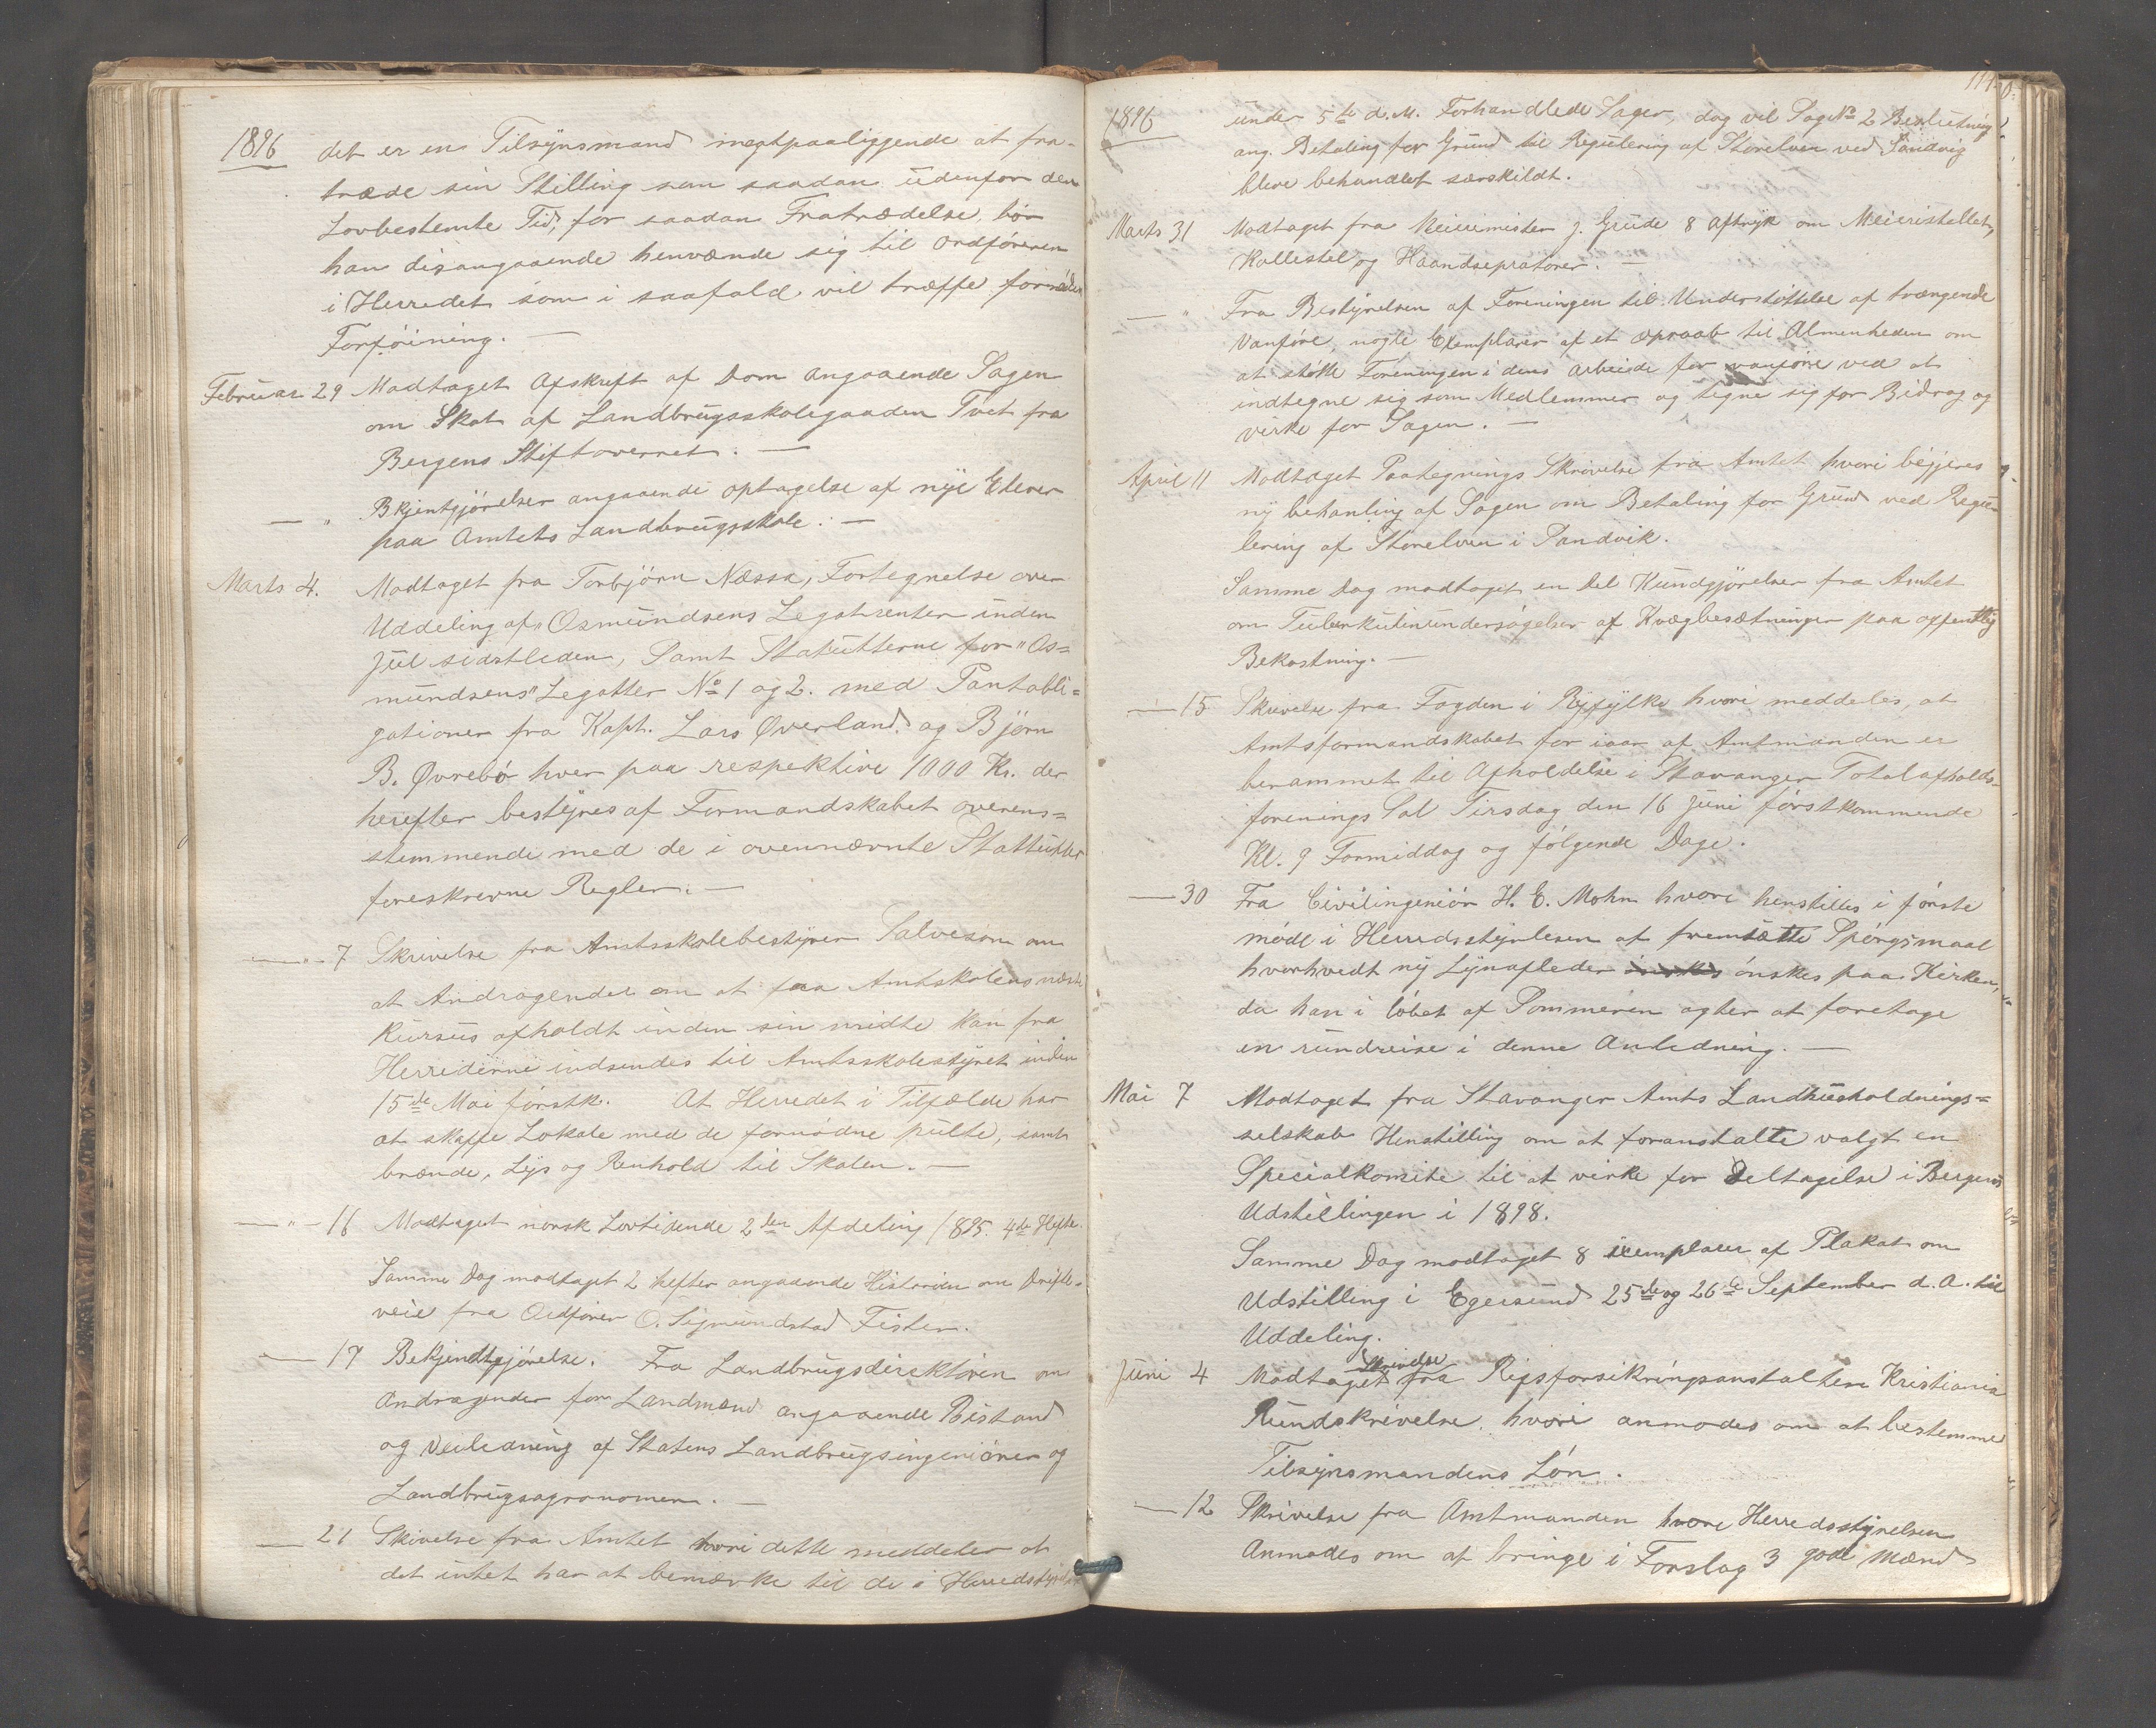 1896
det er en Tilsynsmand magtpaaliggende at fra-
træde sin Stilling som saadan udenfor den
Lovbestemte Tid, for saadan Fratrædelse, bør
han desangaaende henvænde sig til Ordføreren
i Herredet som i saafald vil træffe fornøden
Forføining. —
Februar 29 Modtaget Afskrift af Dom angaaende Sagen
om Skat af Landbrugsskolegaarden Tvet fra
Bergens Stiftoverret. —
— " Bkjentgjørelser angaaende optagelse af nye Elever
paa Amtets Landbrugsskole. —
Marts 4. Modtaget fra Torbjørn Næssa, Fortegnelse over
Uddeling af "Osmundsens Legatrenter inden
Jul sidstleden, Samt Statutterne for "Os=
mundsens" Legatter No 1 og 2. med Pantobli=
gationer fra Kapt. Lars Øverland og Bjørn
B. Øvrebø hver paa respektive 1000 Kr. der
herefter bestyres af Formandskabet overens=
stemmende med de i ovennævnte Stattutter
foreskrevne Regler. —
— " — 7 Skrivelse fra Amtsskolebestyrer Salvesom om
at Andragender om at faa Amtskolens næste
Kursus afholdt inden sin midte kan fra
Herrederne indsendes til Amtsskolestyret inden
15de Mai førstk. At Herredet i Tilfælde har
at skaffe Lokale med de fornødne pulte, samt
brænde, Lys og Renhold til Skolen. —
— " — 16 Modtaget norsk Lovtidende 2den Afdeling 1895. 4de Hefte.
Samme Dag modtaget 2 hefter angaaende Historien om Drifte-
veie fra Ordfører O. Sigmundstad Fister.
— 17 Bekjendtgjørelse. Fra Landbrugsdirektøren om
Andragender for Landmænd angaaende Bistand
og Veiledning af Statens Landbrugsingeniører og
Landbrugsagronomer. —
— 21 Skivelse fra Amtet hvori dette meddeler at
det intet har at bemærke til de i Herredstyret
1896
under 5te d.M. Forhandlede Sager, dog vil Sag No 2 Beslutning
ang. Betaling for Grund til Regulering af Storelven ved Sandvig
blive behandlet særskildt.
Marts 31 Modtaget fra Meierimester J. Grude 8 aftryk om Meieristellet,
Kallestel og Haandsepratorer. —
— " Fra Bestyrelsen af Foreningen til Understøttelse af trængende
Vanføre, nogle Exemplarer af et opraab til Almenheden om
at støtte Foreningen i dens arbeide for vanføre ved at
indtegne sig som Medlemmer og tegne sig for Bidrag og
virke for Sagen. —
April 11 Modtaget Paategnings Skrivelse fra Amtet hvori begjæres
ny behanling af Sagen om Betaling for Grund ved Regu-
lering af Storelven i Sandvik.
Samme Dag modtaget en Del Kundgjørelser fra Amtet
om Tuberkulinundersøgelser af Kvægbesætninger paa offentlig
Bekostning. —
— 15 Skrivelse fra Fogden i Ryfylke hvori meddeles, at
Amtsformandskabet for iaar af Amtmanden er
berammet til Afholdelse i Stavanger Totalafholds-
forenings Sal Tirsdag den 16 Juni førstkommende
Kl. 9 Formiddag og følgende Dage.
— 30 Fra Civilingeniør H. E. Mohn hvori henstilles i første
møde i Herredsstyrelsen at fremsætte Spørgsmaal
hvorhvedt ny Lynafleder ønskes paa Kirken,
da han i løbet af Sommeren agter at foretage
en rundreise i denne Anledning. —
Mai 7 Modtaget fra Stavanger Amts Landhusholdnings=
selskab Henstilling om at foranstalte valgt en
Specialkomite til at virke for Deltagelse i Bergens
Udstillingen i 1898.
Samme Dag modtaget 8 exemplarer af Plakat om
Udstilling i Egersund 25de og 26de September d.A. til
Uddeling.
Skrivelse
Juni 4 Modtaget fra Rigsforsikringsanstalten Kristiania
Rundskrivelse, hvori anmodes om at bestemme
Tilsynsmandens Løn.
— 12 Skrivelse fra Amtmanden hvori Herredsstyrelsen
Anmodes om at bringe i Forslag 3 gode Mænd